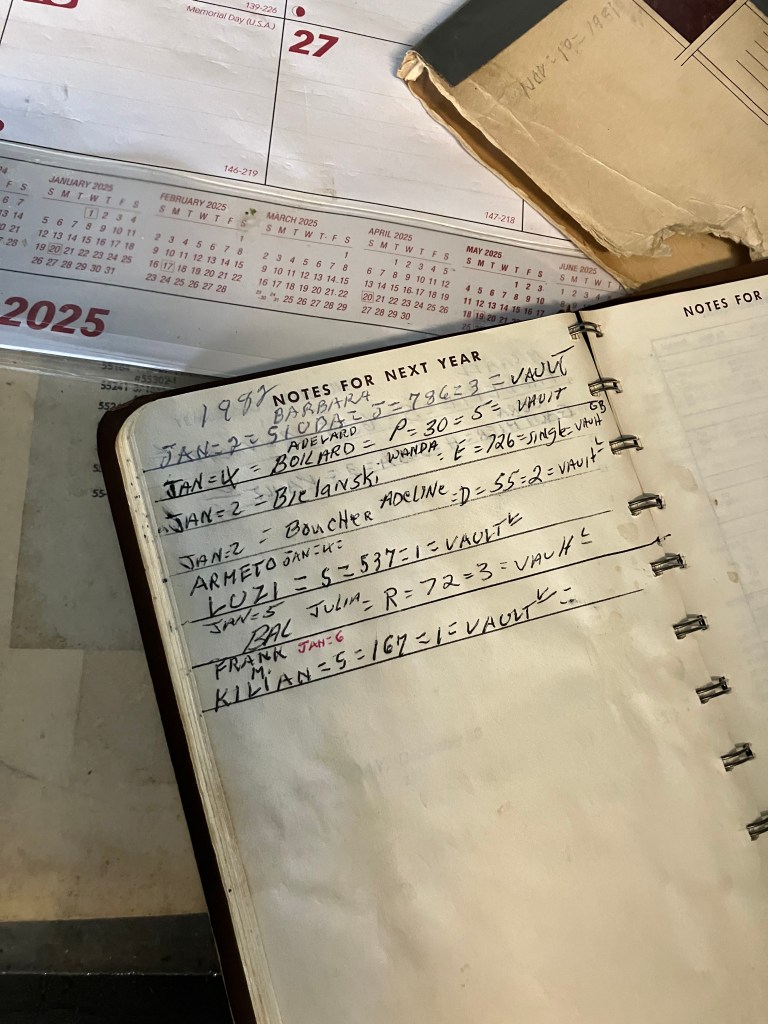 139-226
Memorial Day (U.S.A.)
27
146-219
147-218
Nov-19-1981
JANUARY 2025
S M T W T F S
1 2 3 4
5 6 7 8 9 10 11
12 13 14 15 16 17 18
19 20 21 22 23 24 25
26 27 28 29 30 31
FEBRUARY 2025
S M T W T F S
1
2 3 4 5 6 7 8
9 10 11 12 13 14 15
16 17 18 19 20 21 22
23 24 25 26 27 28
MARCH 2025
S M T W T F S
1
2 3 4 5 6 7 8
9 10 11 12 13 14 15
16 17 18 19 20 21 22
25 26 27 28 29
APRIL 2025
S M T W T F S
1 2 3 4 5
6 7 8 9 10 11 12
13 14 15 16 17 18 19
20 21 22 23 24 25 26
27 28 29 30
MAY 2025
S M T W T F S
1 2 3
4 5 6 7 8 9 10
11 12 13 14 15 16 17
JUNE 2025
S M T W T
2025
NOTES FOR NEXT YEAR
NOTES FOR
1982
BARBARA
JAN=2=SIODA=J=786=3=VAULT
ADELARD
JAN=4=BOILARD=P=30=5=VAULT
JAN=2=Bielanski WANDA=E=726=single=VAULT
JAN=2=Boucher ADELINE=D=55=2=VAULT
ARMETO JAN=4=
LUZI=S=537=1=VAULT
JAN=5
BAL JULIA=R=72=3=VAULT
FRANK JAN=6
M.
KILIAN=5=167=1=VAULT=